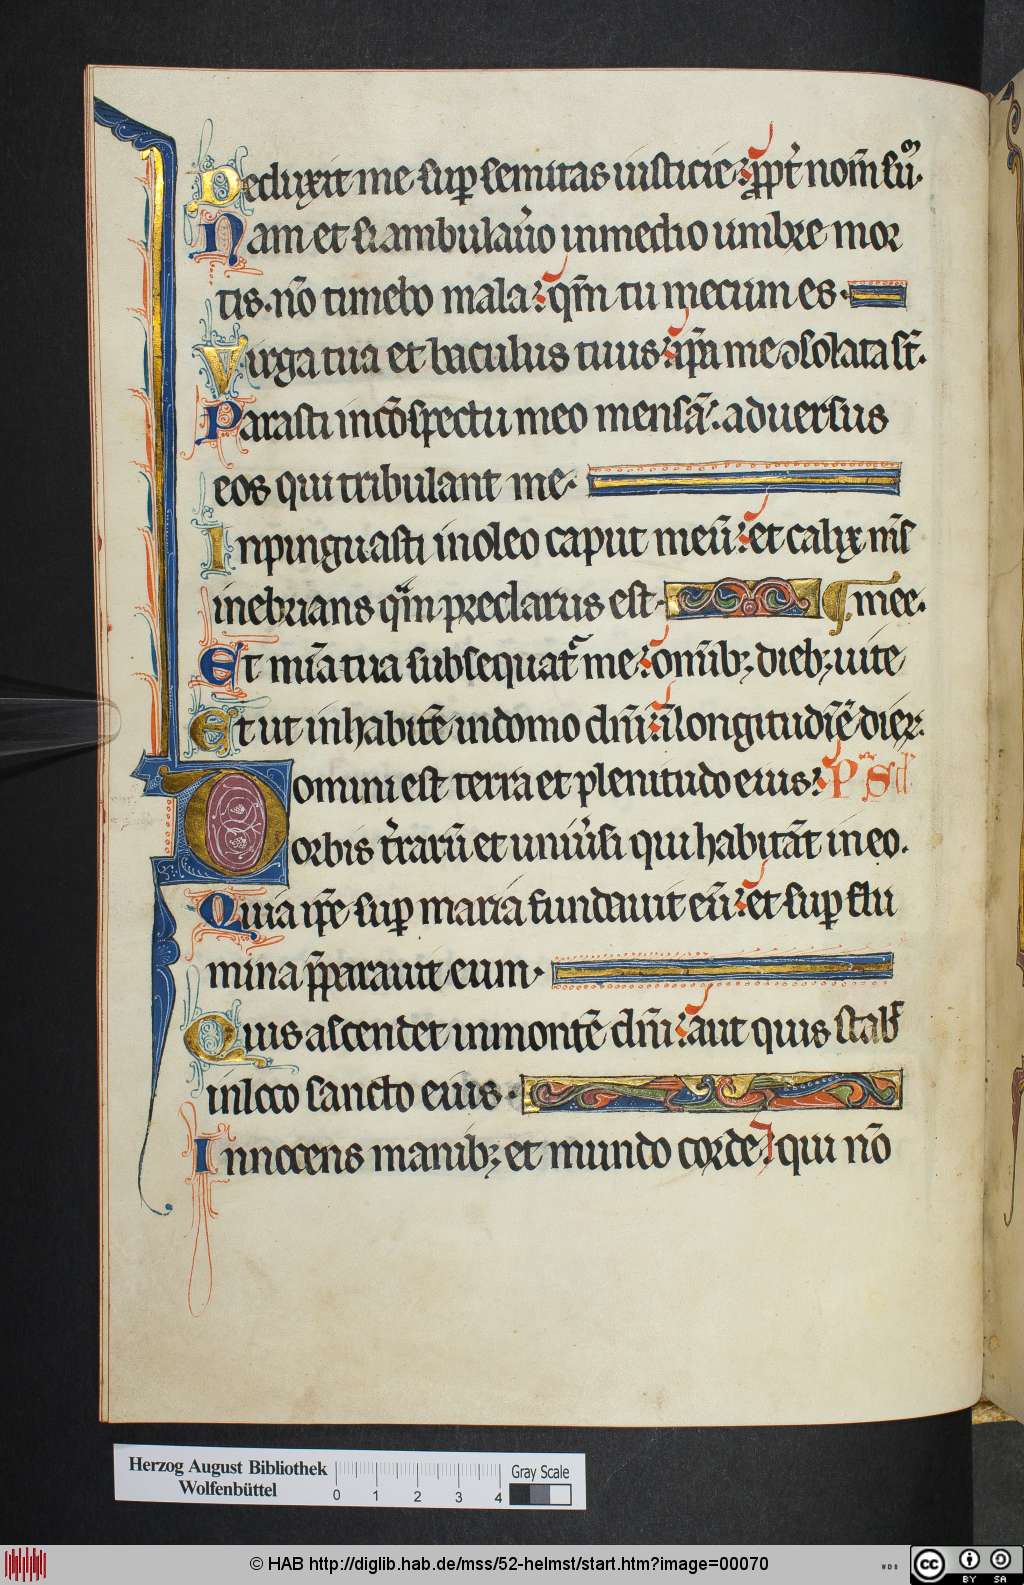 Deduxit me sup semitas iusticie: ppt nom̄ suū.
Nam et si ambulauo inmedio umbre mor
tis. nō timebo mala: qm̄ tu mecum es.
Virga tua et baculus tuus: ipa me ɔsolata st̄.
Parasti incōspectu meo mensā: aduersus
eos qui tribulant me.
Inpinguasti inoleo caput meū: et calix m̄s
inebrians qm̄ preclarus est. ¶ mee.
Et mīa tua subsequat me: omībꝫ diebꝫ uite
Et ut inhabitē indomo dn̄i: ī longitudīē dieꝝ.
Domini est terra et plenitudo eius: Ps̄ dd
orbis trarū et uniusi qui habitāt in eo.
Quia ipe sup maria fundauit eū: et sup flu
mina pparauit eum.
Quis ascendet inmontē dn̄i: aut quis stab
inloco sancto eius.
Innocens manibꝫ et mundo corde: qui nō
Herzog August Bibliothek
Wolfenbüttel
Gray Scale
0 1 2 3 4
© HAB http://diglib.hab.de/mss/52-helmst/start.htm?image=00070
WDB
cc BY SA